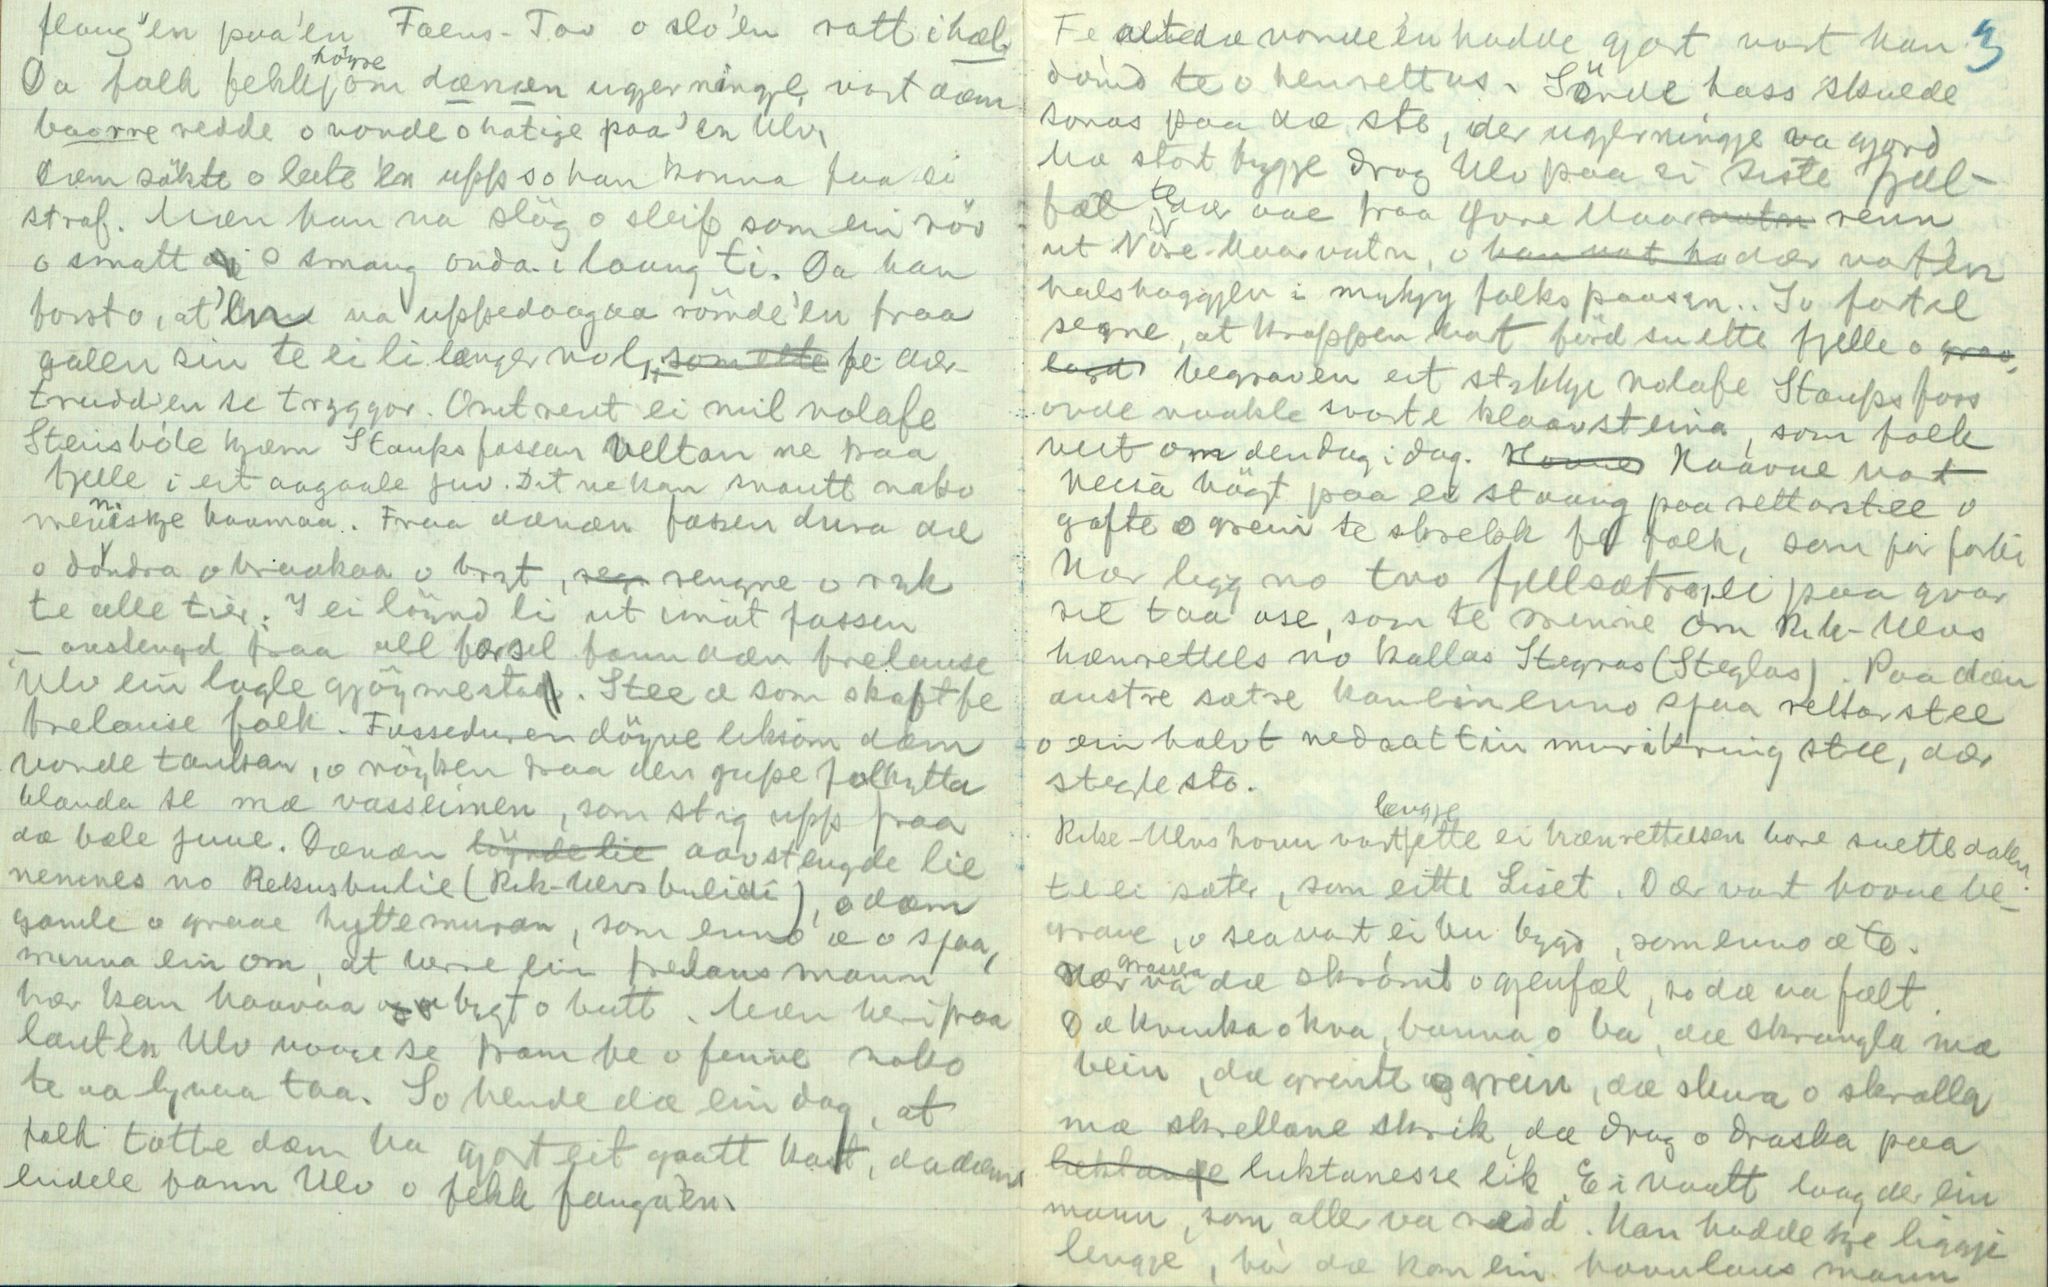 flaug'en paa'en Faens-Tov o slo'en ratt ihæl.
Da folk fekk høyre om dænæn ugjerningje, vart dæm
baorre redde o vonde o hatige paa'en Ulv,
Dæm søkte o leite'en upp so han konna faa si
straf. Mæn han va sløg o sleip som ein røv
o smatt o smaug onda i laang ti. Da han
forsto, at'en va uppedaagaa rømde'en fraa
galen sin te ei li længer nol, som ette fe dær
trudd'en se tryggor. Omtrent ei mil nolafe
Steinsbøle kjæm Staupsfossen veltan ne fraa
fjelle i eit aagaale juv. Dit ve kan snautt nako
menniskje kaamaa. Fraa dænæn fossen dura dæ
o dondra o braakaa o bryt, regn rengne o ryk
te alle tier. I ei løynd li ut imot fossen
— avstengd fraa all færsel fann dæn frelause
Ulv ein lagle gjøymestad. Stee æ som skaft fe
frelause folk. Fosseduren døyve liksom dæm
vonde tankan, o røyken fraa den gupe folhytta
blanda se mæ vasseimen, som stig upp fraa
dæ hæle juve. Dænæn løyndelie aavstengde lie
nemnes no Rekusbulie (Rik-Ulvsbulidi), o dæm
gamle o graae hyttemuran, som enno æ o sjaa,
minna ein om, at herre ein frelaus mann
hær kan haavaa bygt o butt. Mæn heri fraa
læut'en Ulv vaage se fram fe o finne nako
te aa lyvaa taa. So hende dæ ein dag, at
folk totte dæm ha gjort eit gaatt kast, da dæm
endele fann Ulv o fekk fanga'en.
3
Fe alt dæ vonde'en hadde gjort vart han
dømd te o henrettas. Sønde hass skuede
sonas paa dæ ste, der ugjerningje va gjord
Mæ stort fygje drog Ulv paa si siste fjell-
fæl te dær aae fraa Øvre Maarvatn renn
ut Nøre-Maarvatn, o han vat ha dær vart'en
halshoggjen i mykjy folks paasyn. So fortel
segne, at kroppen vart førd su ette fjelle o grav
lagd begraven eit stykkje nolafe Staupsfoss
onde naakle svarte klaavsteina, som folk
veit om den dag i dag. Hovue Haavue vart
heisa høgt paa ei staang paa rettarstee o
gafte o grein te skrekk fe folk, som for forbi
Hær legg no tvo fjellsætra, ei paa qvar
sie taa ose, som te minne om Rik-Ulvs
hænrettels no kallas Stegras (Steglas). Paa dæn
austre sætre kan ein enno sjaa rettarstee
o ein halvt nedaattin mur ikring stee, dær
stegle sto.
Rike-Ulvs hovu vart lengje ette ei hænrettelsen høre su ette dalen
te ei sæter, som eitte Liset. Dær vart hovue be-
grave, o sea vart ei bu bygd, som enno æ te.
Hær va grassea dæ skrømt o gjenfæl, so dæ va fælt.
Dæ kvinka o kva, banna o ba, dæ skrangla mæ
bein, dæ grinte o grein, dæ skura o skralla
mæ skrellane skrik, dæ drog o draska paa
liklange luktanesse lik. Ei naatt laag der ein
mann, som aller va redd. Han hadde kje liggji
lengje, før dæ kom ein hovulaus mann